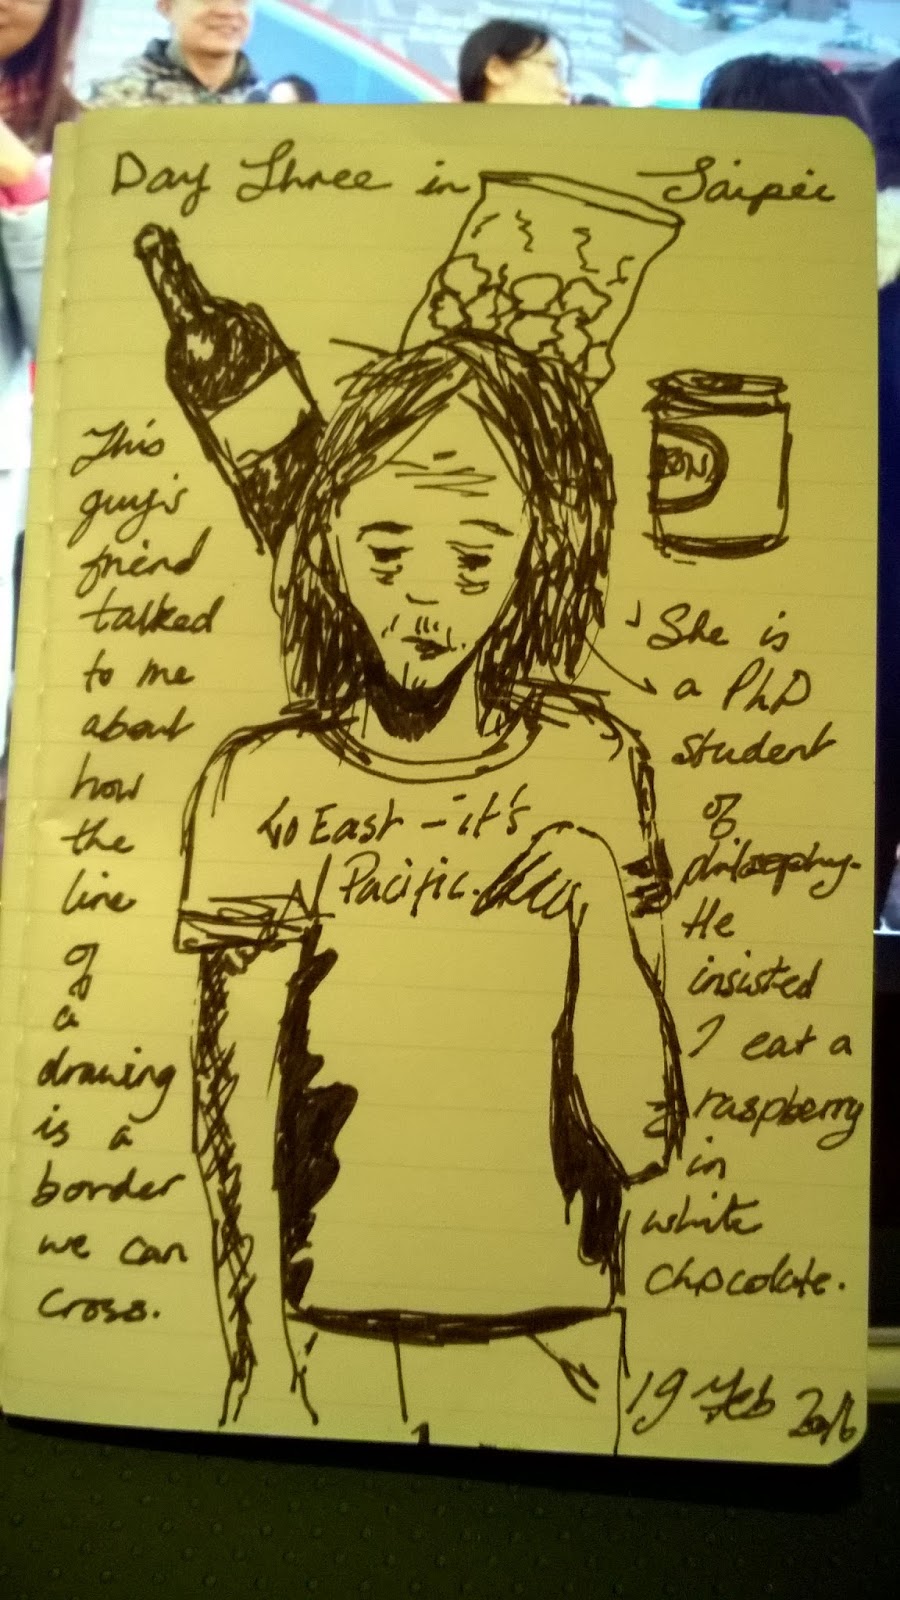 Day Three in Taipei
This
guy's
friend
talked
to me
about
how
the
line
of
a
drawing
is a
border
we can
cross.
Go East - it's
Pacific.
She is
a PhD
student
of
philosophy.
He
insisted
I eat a
raspberry
in
white
chocolate.
19 Feb 2016